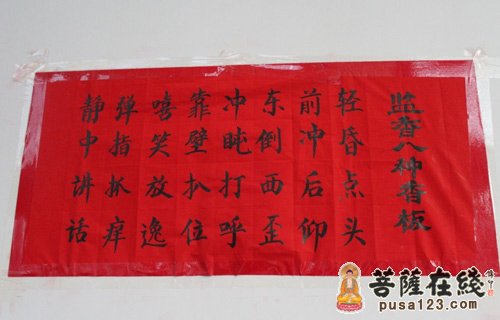 监香八种香板
轻昏点头
前冲后仰
东倒西歪
冲盹打呼
靠壁扒位
嘻笑放逸
弹指抓痒
静中讲话
菩薩在綫
pusa123.com